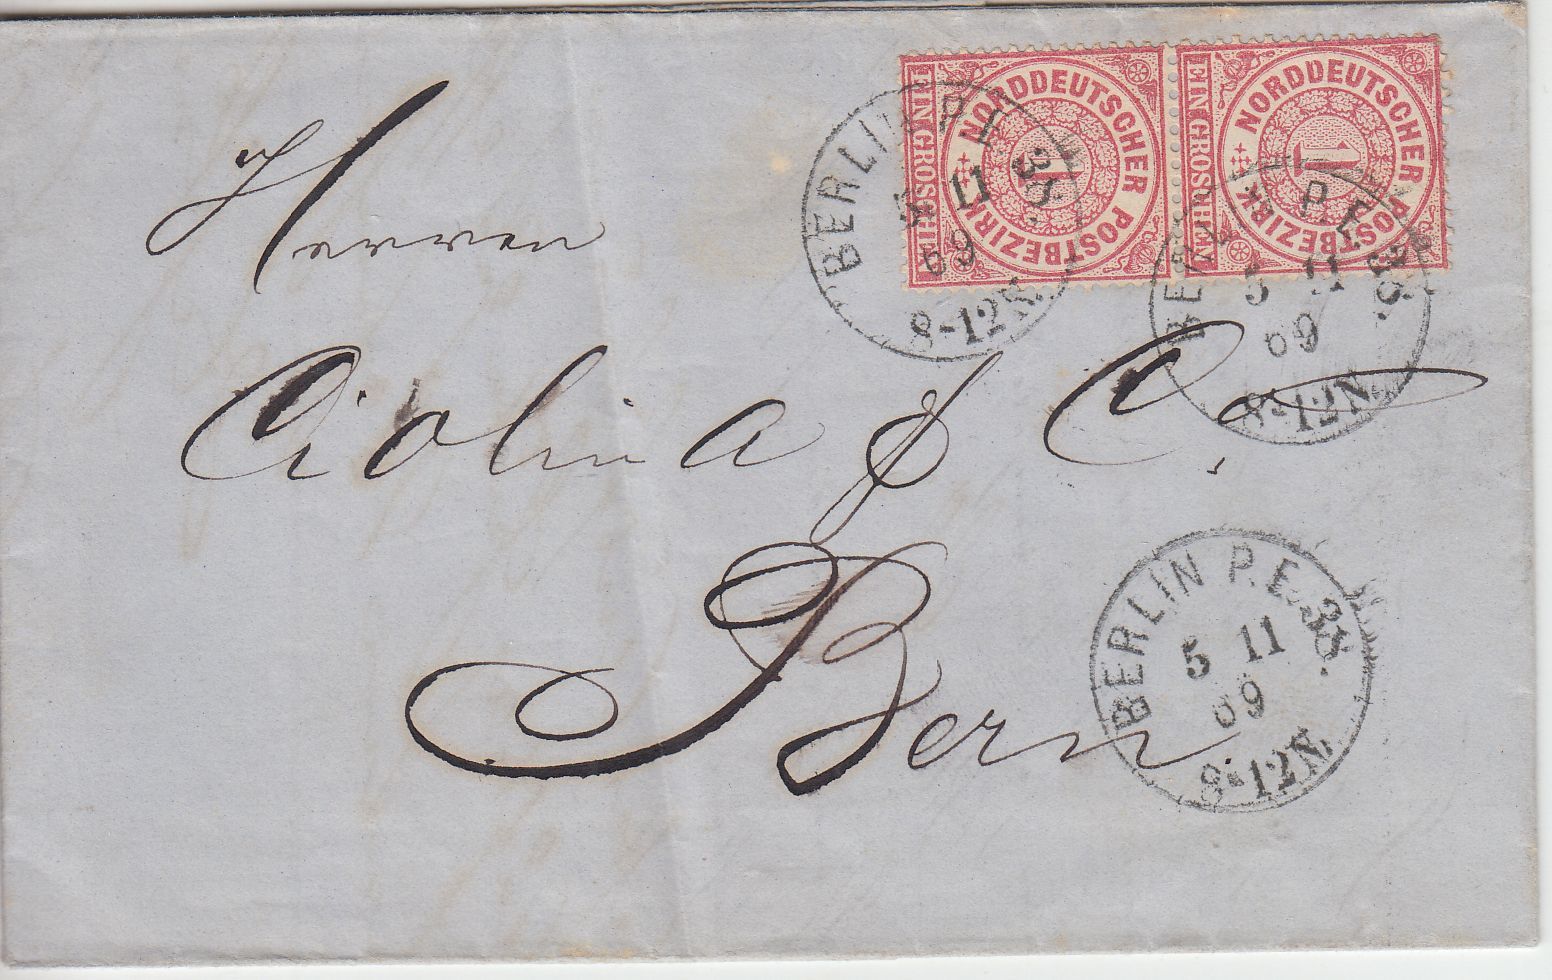 NORDDEUTSCHER POSTBEZIRK
EIN GROSCHEN
1
NORDDEUTSCHER POSTBEZIRK
EIN GROSCHEN
1
BERLIN P.E. 38.
5 11
69
8-12 N.
BERLIN P.E. 38.
5 11
69
8-12 N.
Herren
& Co.
Bern
BERLIN P.E. 38.
5 11
69
8-12 N.